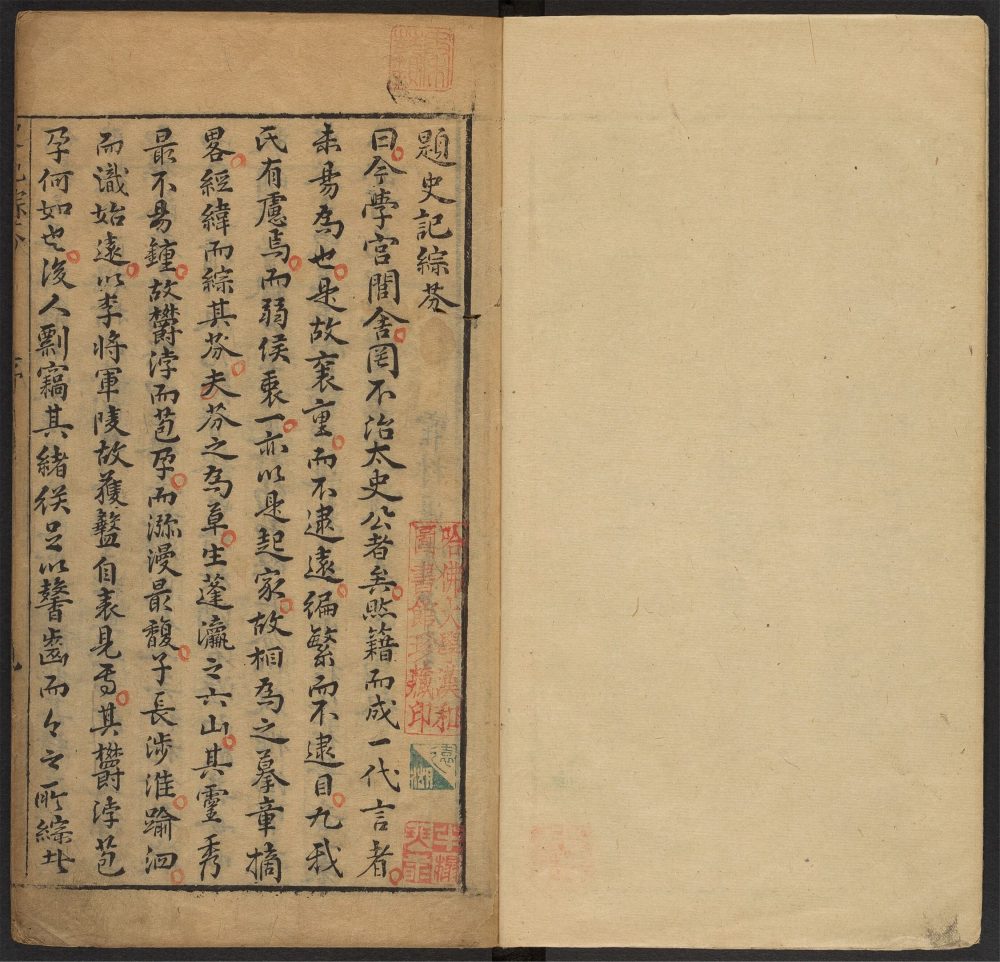 題史記綜芬
曰今學宮閭舍罔不治太史公者矣然籍而成一代言者
未易爲也是故袠重而不逮遠編繁而不逮目九我
氏有慮焉而弱侯秉一亦以是起家故相爲之摹章摘
畧經緯而綜其芬夫芬之爲草生蓬瀛之六山其靈秀
最不易鍾故欝浡而苞孕而瀰漫最馥子長涉淮踰泗
而識始遠以李將軍陵故獲盭自表見焉其欝浡苞
孕何如也後人剽竊其緒秖足以馨齒而今之所綜此
哈佛大學漢和
圖書館珍藏印